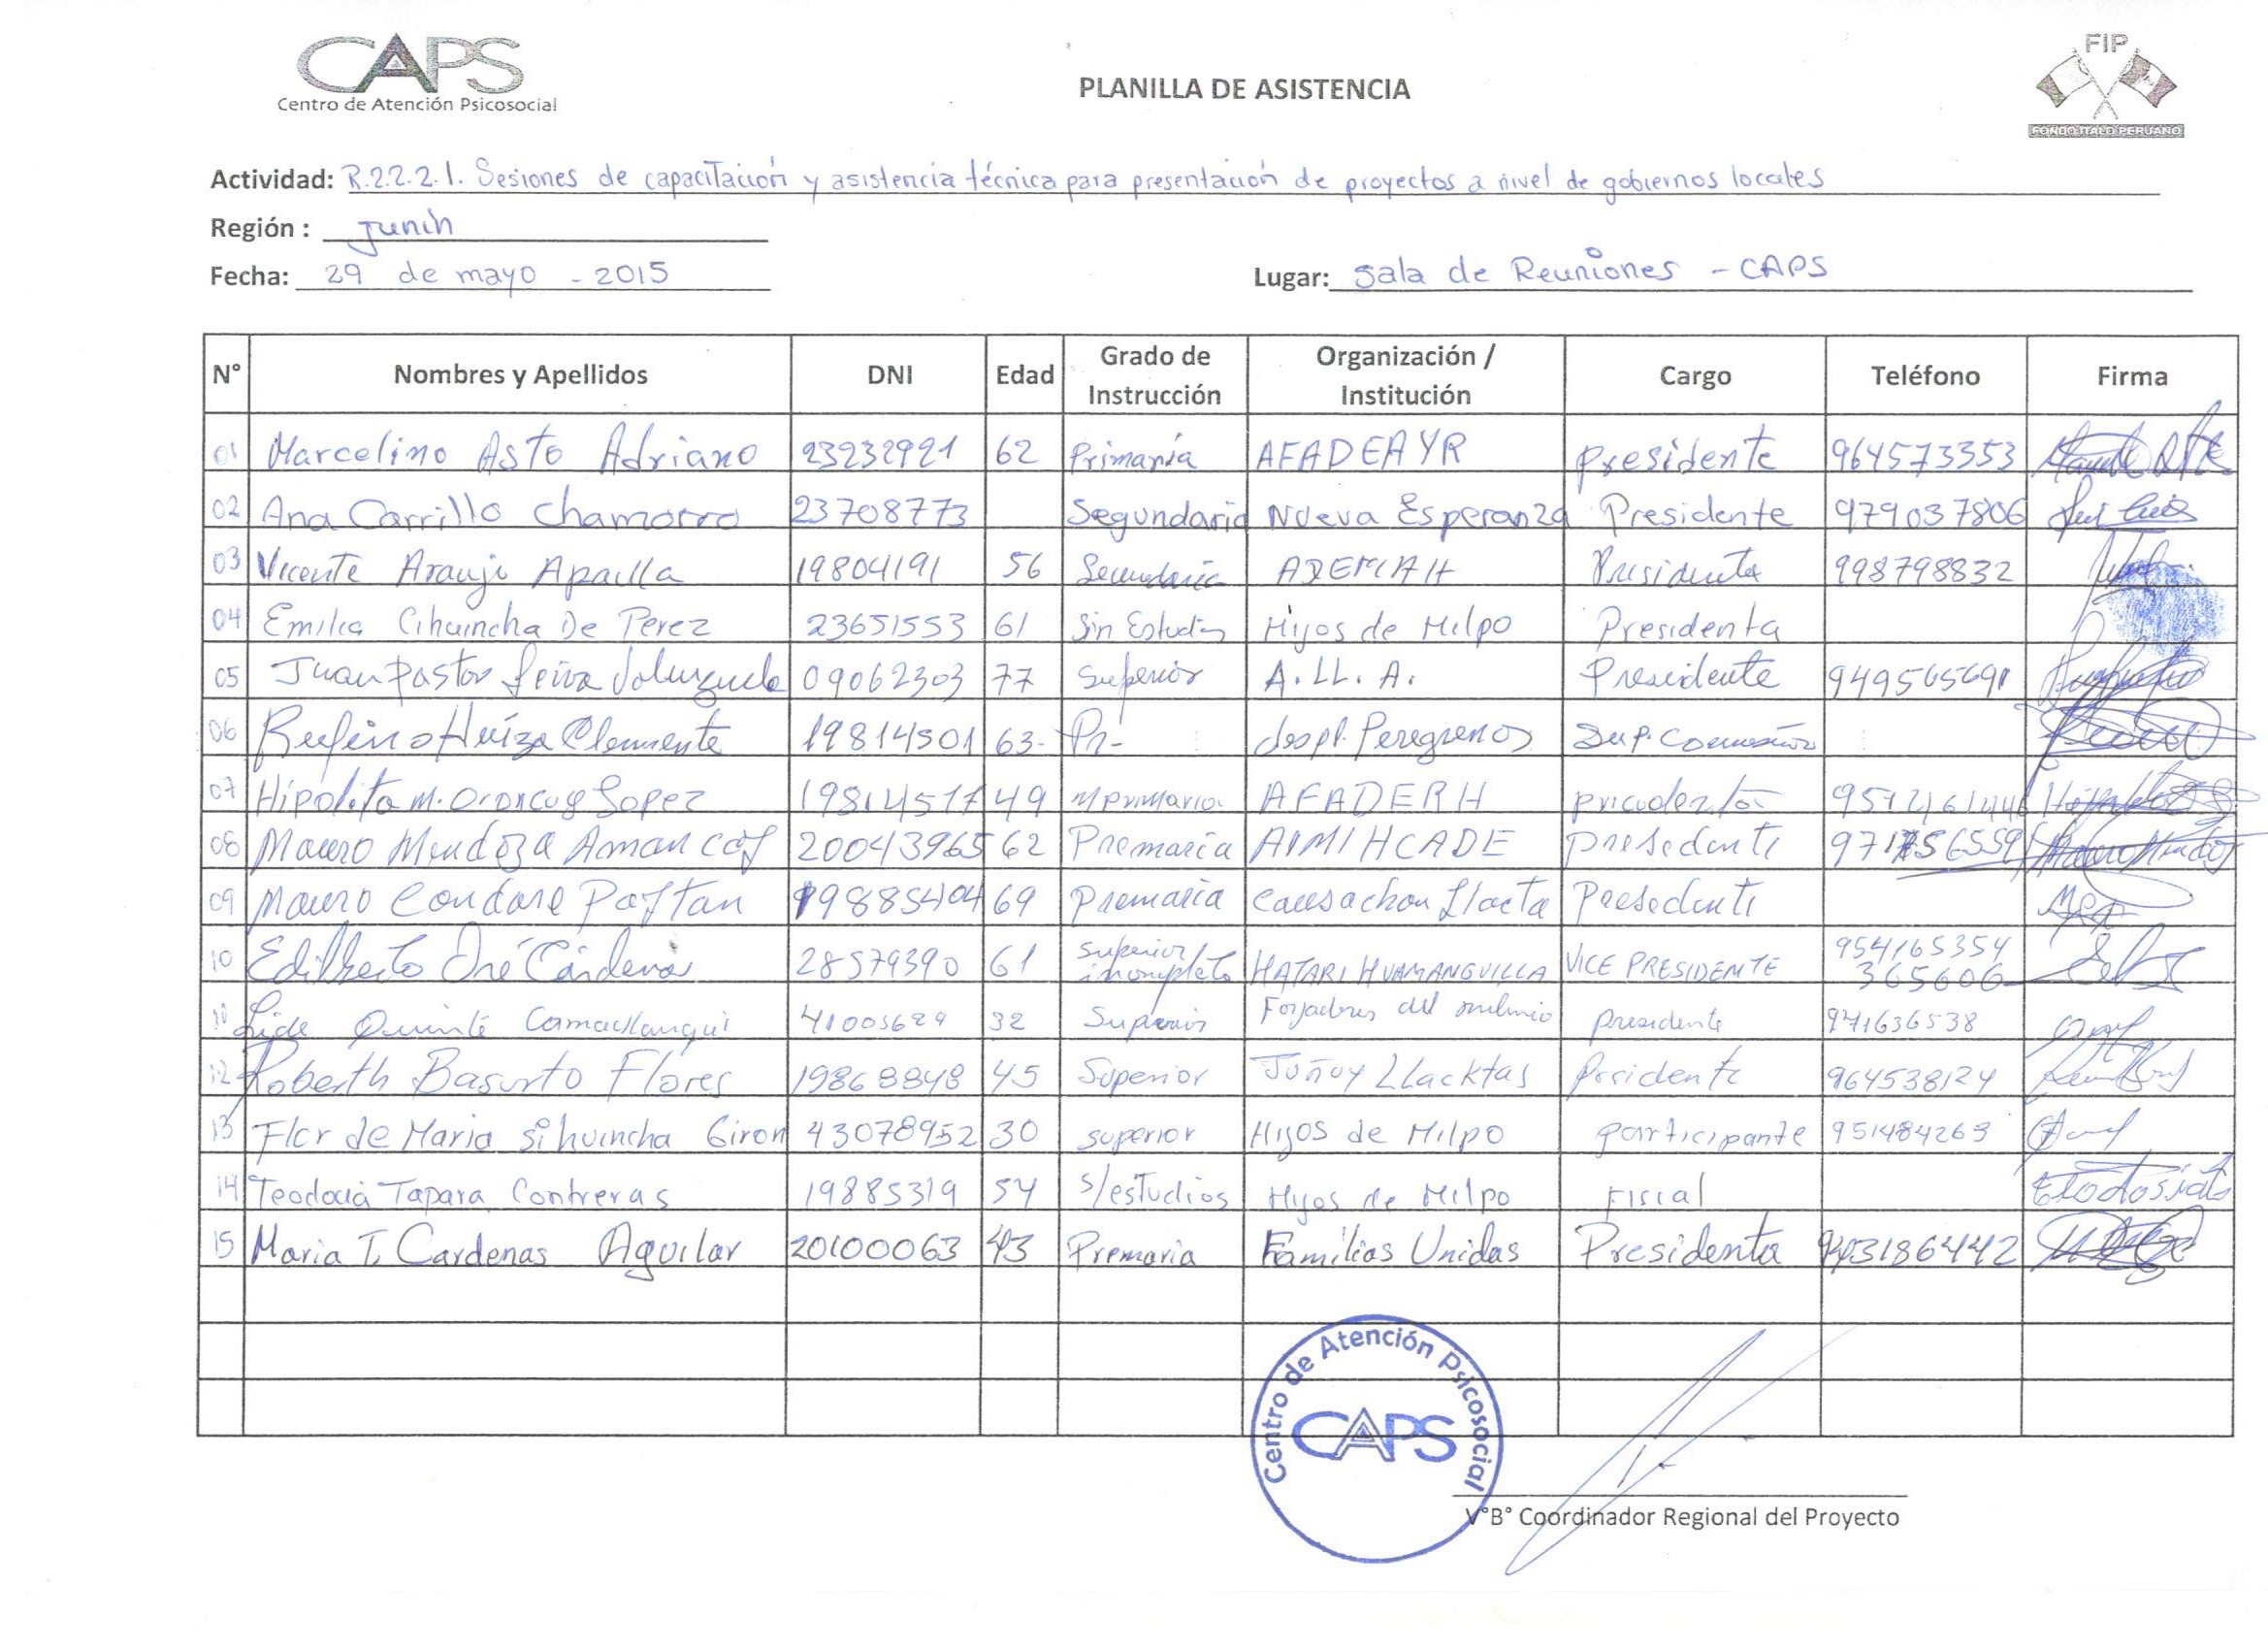 CAPS
Centro de Atención Psicosocial
PLANILLA DE ASISTENCIA
FIP
FONDO ITALO PERUANO
Actividad: R.2.2.2.1. Sesiones de capacitación y asistencia técnica para presentación de proyectos a nivel de gobiernos locales
Región : Junín
Fecha: 29 de mayo - 2015
Lugar: Sala de Reuniones - CAPS
N° Nombres y Apellidos DNI Edad Grado de Instrucción Organización / Institución Cargo Teléfono Firma
01 Marcelino Asto Adriano 23232921 62 Primaria AFADEAYR presidente 964573353
02 Ana Carrillo Chamorro 23708773 Segundario Nueva Esperanza Presidente 979037806
03 Vicente Araujo Apailla 19804191 56 Secundaria ADEMAH Presidente 998798832
04 Emilia Cihuincha De Perez 23651553 61 Sin Estudios Hijos de Milpo Presidenta
05 Juan Pastor Leiva 09062303 77 Superior A.LL.A. Presidente 949565691
06 Rufino Huíza Clemente 19814501 63- Pr- despl. Peregrenos Sup.
07 Hipolita M. Oroncuy Lopez 19814517 49 AFADERH
08 Mauro Mendoza Aman 20043965 62 Premaria AIMIHCADE presedente
09 Mauro Condore Paytan 19885404 69 premaria Causachon Llacta Presedente
10 Edilberto Oré Cárdenas 28579390 61 superior incompleto HATARI HUAMANGUILLA VICE PRESIDENTE 954165354 365606
Quinté Camacllanqui 41005629 32 Superior Forjadores del milenio presidente 971636538
12 Roberth Basurto Flores 19868848 45 Superior Llacktas Presidente 964538124
13 Flor de Maria Sihuincha Giron 43078952 30 superior Hijos de Milpo participante 951484263
14 Teodocia Tapara Contreras 19885319 54 s/estudios Hijos de Milpo Fiscal
15 Maria T. Cardenas Aguilar 20100063 43 Premaria Familias Unidas Presidenta
Centro de Atención Psicosocial
CAPS
V°B° Coordinador Regional del Proyecto